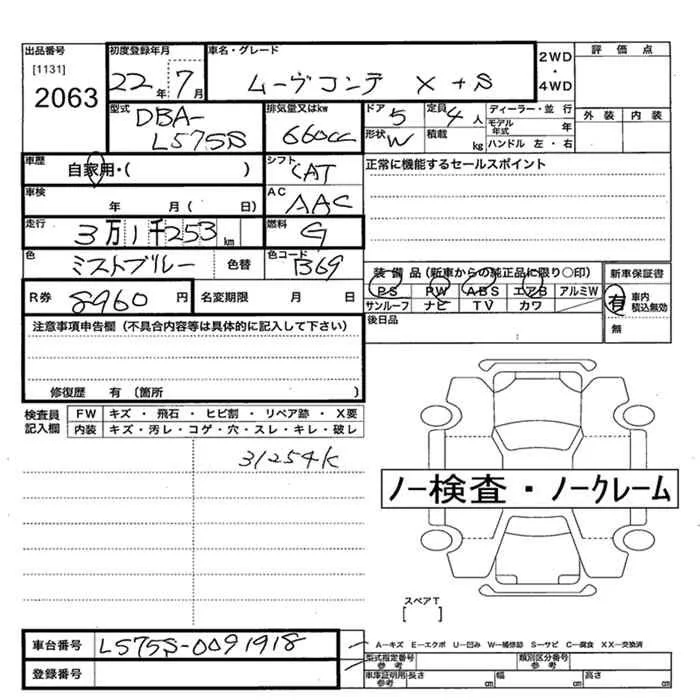 出品番号 初度登録年月 車名・グレード 2WD・4WD 評価点
[1131] 22年7月 ムーヴコンテ X+S
2063
型式 排気量又はkw ドア 5 定員 4人 ディーラー・並行 外装 内装
DBA-L575S 660cc 形状 W 積載 kg モデル年式 年
ハンドル 左・右
車歴 シフト 正常に機能するセールスポイント
自家用・( ) CAT
車検 AC
年 月( 日) AAC
走行 燃料
3万1千253km G
色 色コード
ミストブルー 色替 B69
装備品(新車からの純正品に限り○印) 新車保証書
PS PW ABS エアB アルミW 有 車内積込無効
サンルーフ ナビ TV カワ 無
R券 8960円 名変期限 月 日
後日品
注意事項申告欄(不具合内容等は具体的に記入して下さい)
修復歴 有(箇所 )
検査員記入欄 FW キズ・飛石・ヒビ割・リペア跡・X要
内装 キズ・汚レ・コゲ・穴・スレ・キレ・破レ
31254K
ノー検査・ノークレーム
スペアT
[ ]
車台番号 L575S-0091918
A-キズ E-エクボ U-凹み W-補修跡 S-サビ C-腐食 XX-交換済
登録番号
型式指定番号 参考 類別区分番号 参考
車庫証明用 参考 長さ cm 幅 cm 高さ cm